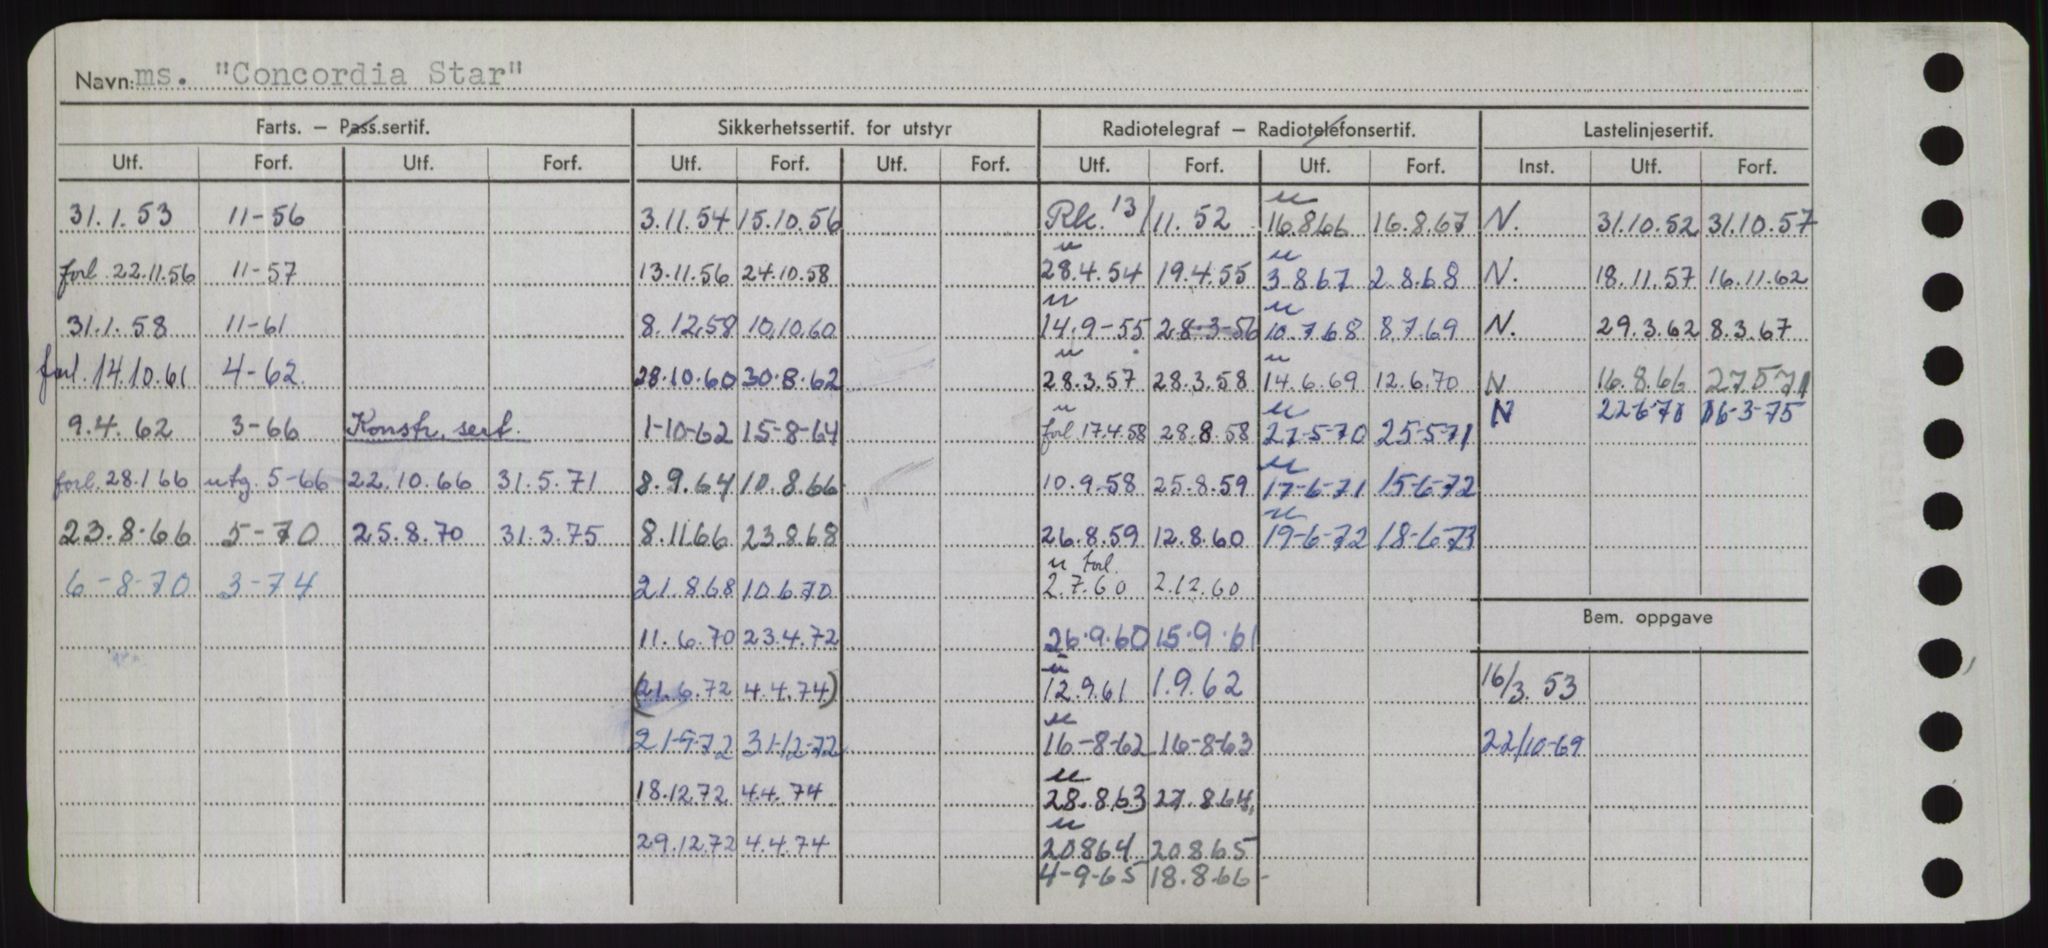 Navn: ms. "Concordia Star"
Farts. – Pass.sertif. Sikkerhetssertif. for utstyr Radiotelegraf – Radiotelefonsertif. Lastelinjesertif.
Utf. Forf. Utf. Forf. Utf. Forf. Utf. Forf. Utf. Forf. Utf. Forf. Inst. Utf. Forf.
31.1.53 11-56 3.11.54 15.10.56 Rk. 13/11.52 u 16.8.66 16.8.67 N. 31.10.52 31.10.57
forl 22.11.56 11-57 13.11.56 24.10.58 u 28.4.54 19.4.55 u 3.8.67 2.8.68 N. 18.11.57 16.11.62
31.1.58 11-61 8.12.58 10.10.60 u 14.9-55 28-3-56 u 10.7.68 8.7.69 N. 29.3.62 8.3.67
forl. 14.10.61 4-62 28.10.60 30.8.62 u 28.3.57 28.3.58 u 14.6.69 12.6.70 N 16.8.66 27.5.71
N 22-6-71 16-3-75
9.4.62 3-66 Konstr. sert. 1-10-62 15-8-64 u forl 17.4.58 28.8.58 u 27-5-70 25-5-71
forl. 28.1.66 utg. 5-66 22.10.66 31.5.71 8.9.64 10.8.66 10.9.58 25.8.59 u 17-6-71 15-6-72
23.8.66 5-70 25.8.70 31.3.75 8.11.66 23.8.68 26.8.59 12.8.60 u 19-6-72 18-6-73
6-8-70 3-74 21.8.68 10.6.70 u forl. 2.7.60 2.12.60
Bem. oppgave
11.6.70 23.4.72 26.9.60 15.9.61
(21.6.72 4.4.74) u 12.9.61 1.9.62 16/3.53
21-9-72 31-12-72 u 16-8-62 16-8-63 22/10-69
18.12.72 4.4.74 u 28.8.63 27.8.64
29.12.72 4.4.74 u 20.8.64 20.8.65
4-9-65 18.8.66